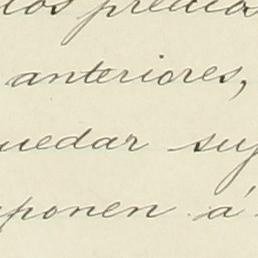 los predios
anteriores,
quedar suj
mponen á